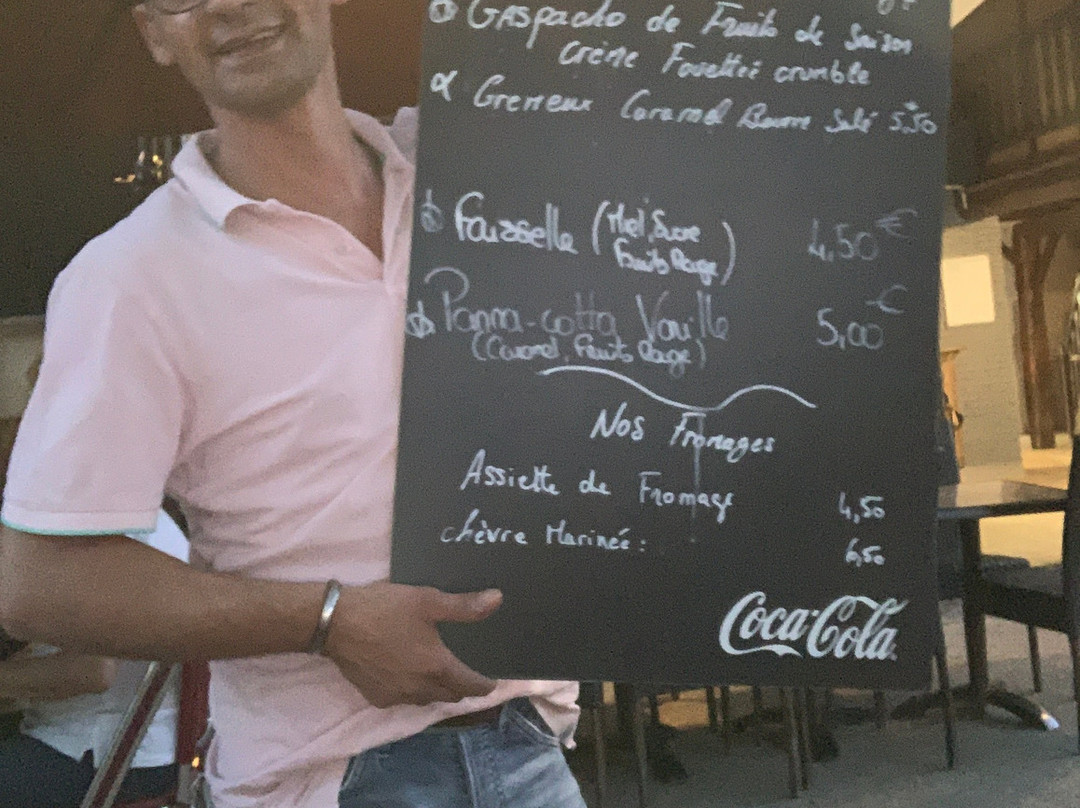 Gaspacho de Fruits de Saison
Crème Fouettée crumble
Gremeux Caramel Beurre Salé 5,50
Faisselle (Miel, Sucre 4,50 €
Fruits Rouge)
Panna-cotta Vanille 5,00 €
(Caramel, Fruits Rouge)
Nos Fromages
Assiette de Fromage 4,50
chèvre Marinée: 6,50
Coca-Cola